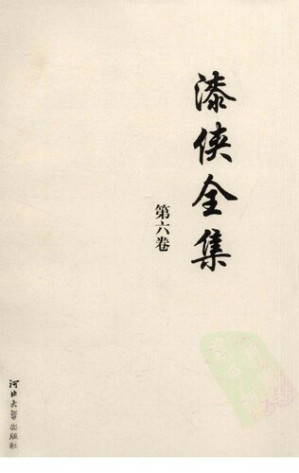 漆侠全集
第六卷
河北大学出版社